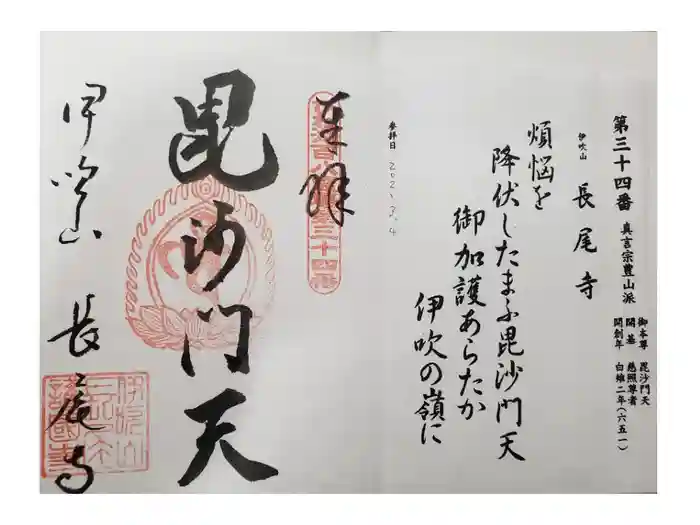 第三十四番 真言宗豊山派
御本尊 毘沙門天
開基 慈照尊者
開創年 白雉二年(六五一)
伊吹山 長尾寺
煩悩を
降伏したまふ毘沙門天
御加護あらたか
伊吹の嶺に
参拝日 2021.2.4
奉拝
三十四番
毘沙門天
伊吹山 長尾寺